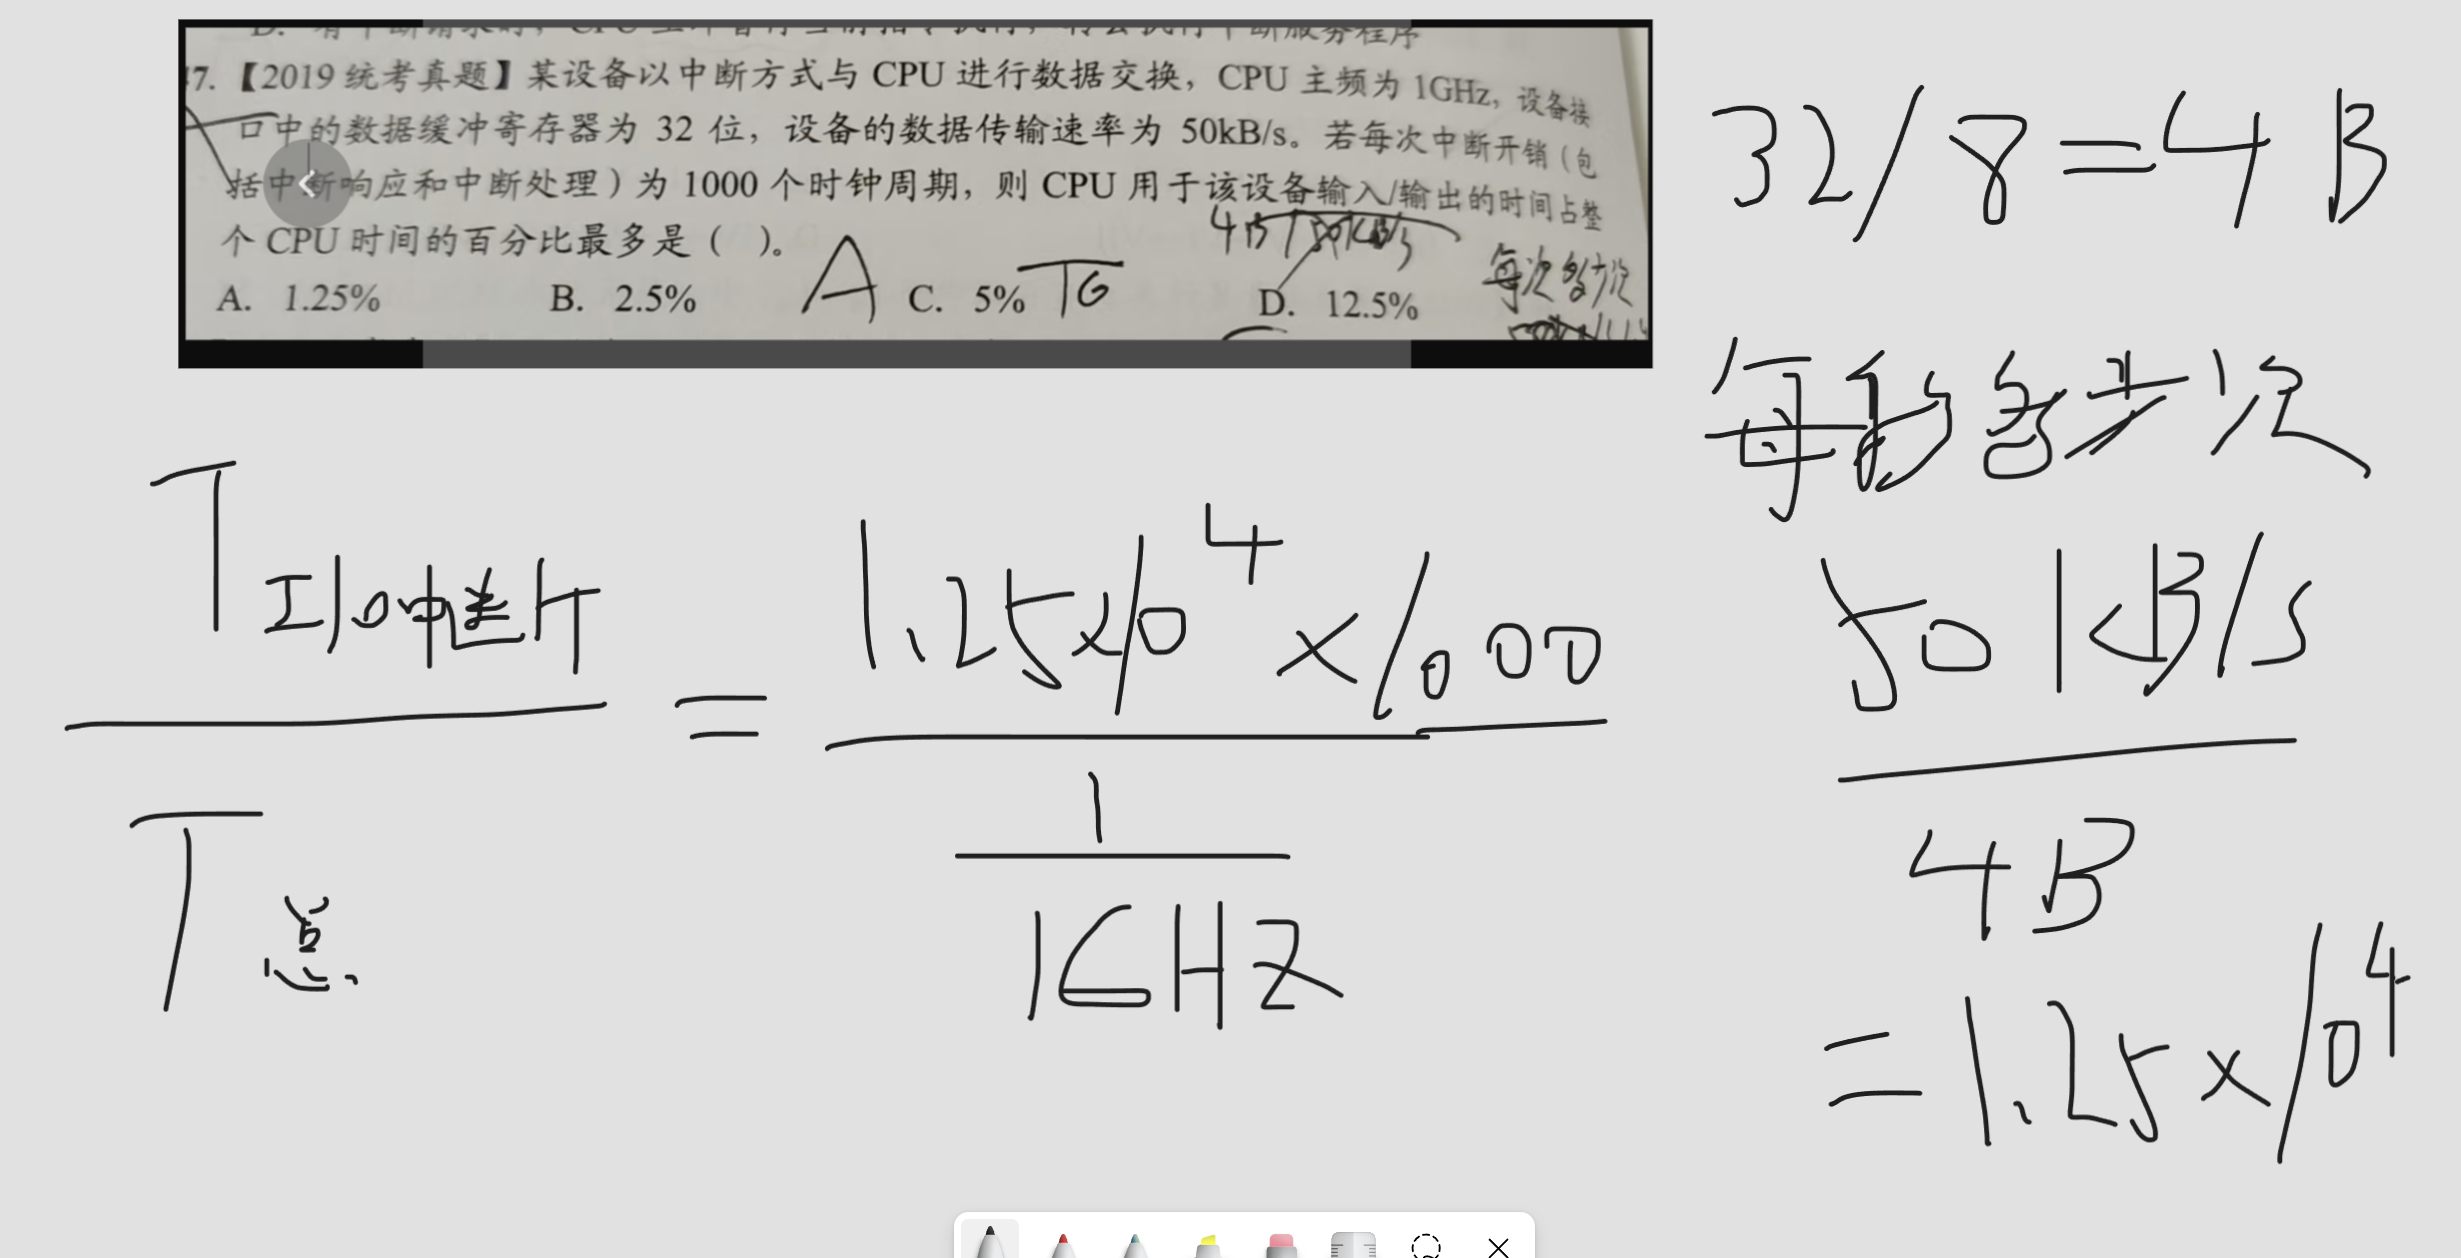 47. 【2019 统考真题】某设备以中断方式与 CPU 进行数据交换，CPU 主频为 1GHz，设备接
口中的数据缓冲寄存器为 32 位，设备的数据传输速率为 50kB/s。若每次中断开销（包
括中断响应和中断处理）为 1000 个时钟周期，则 CPU 用于该设备输入/输出的时间占整
个 CPU 时间的百分比最多是（ ）。
A
A. 1.25% B. 2.5% C. 5% D. 12.5%
每次多少次
32/8=4B
每秒多少次
50KB/s
4B
=1.25×10^4
T I/O中断
T 总
=
1.25×10^4×1000
1
1GHZ